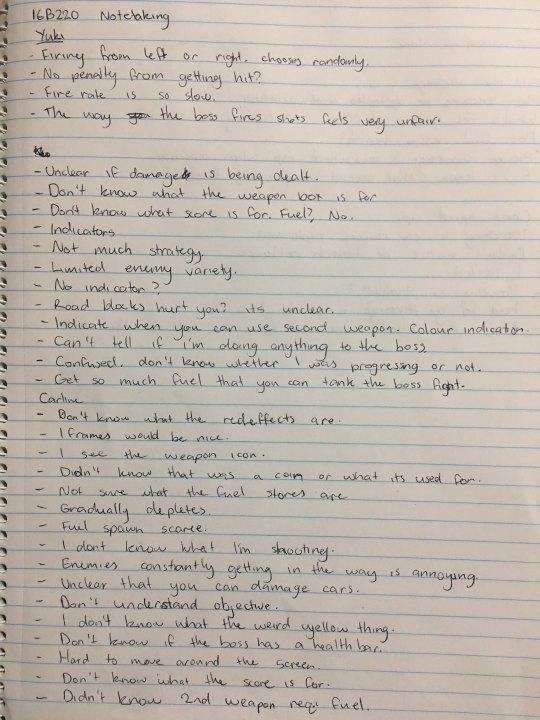 IGB220 Notetaking
Yuki
- Firing from left or right, chooses randomly.
- No penalty from getting hit?
- Fire rate is so slow.
- The way the boss fires shots feels very unfair.
- Unclear if damage is being dealt.
- Don't know what the weapon box is for
- Don't know what score is for. Fuel? No.
- Indicators
- Not much strategy.
- Limited enemy variety.
- No indicator?
- Road blocks hurt you? its unclear.
- Indicate when you can use second weapon. Colour indication.
- Can't tell if i'm doing anything to the boss
- Confused. don't know whether I was progressing or not.
- Get so much fuel that you can tank the boss fight.
Carline
- Don't know what the red effects are.
- I frames would be nice.
- I see the weapon icon.
- Didn't know that was a coin or what its used for.
- Not sure what the fuel stores are
- Gradually depletes.
- Fuel spawn scarce.
- I dont know what I'm shooting.
- Enemies constantly getting in the way is annoying.
- Unclear that you can damage cars.
- Don't understand objective.
- I don't know what the weird yellow thing.
- Don't know if the boss has a health bar.
- Hard to move around the screen.
- Don't know what the score is for.
- Didn't know 2nd weapon requ fuel.